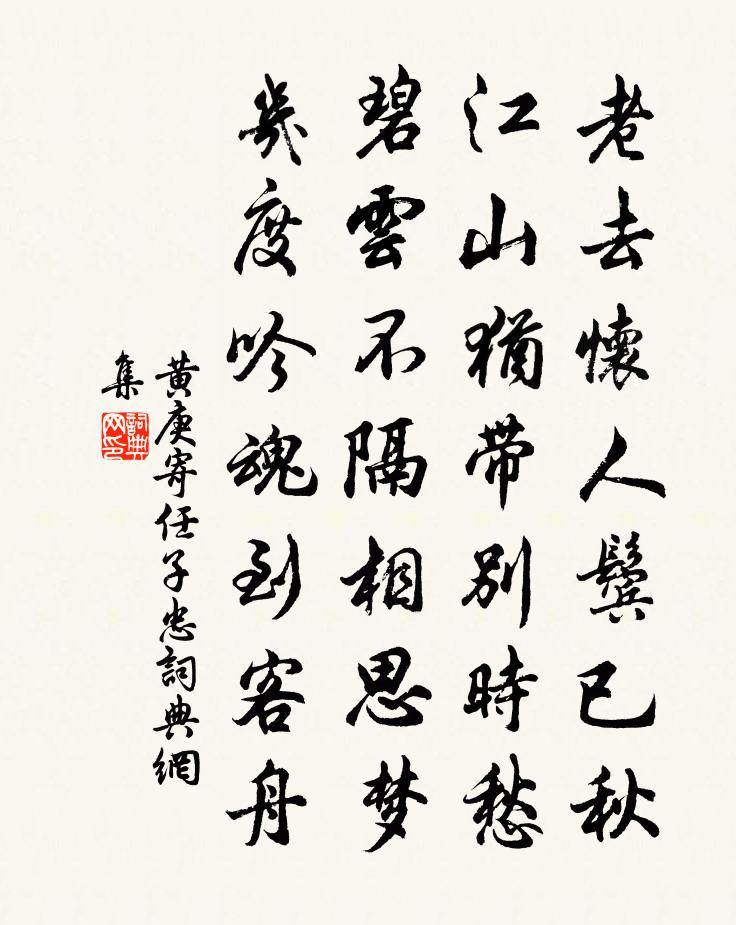 老去懷人鬢已秋
江山猶帶別時愁
碧雲不隔相思梦
幾度吟魂到客舟
黃庚寄任子忠詞典網
集
詞典
网印